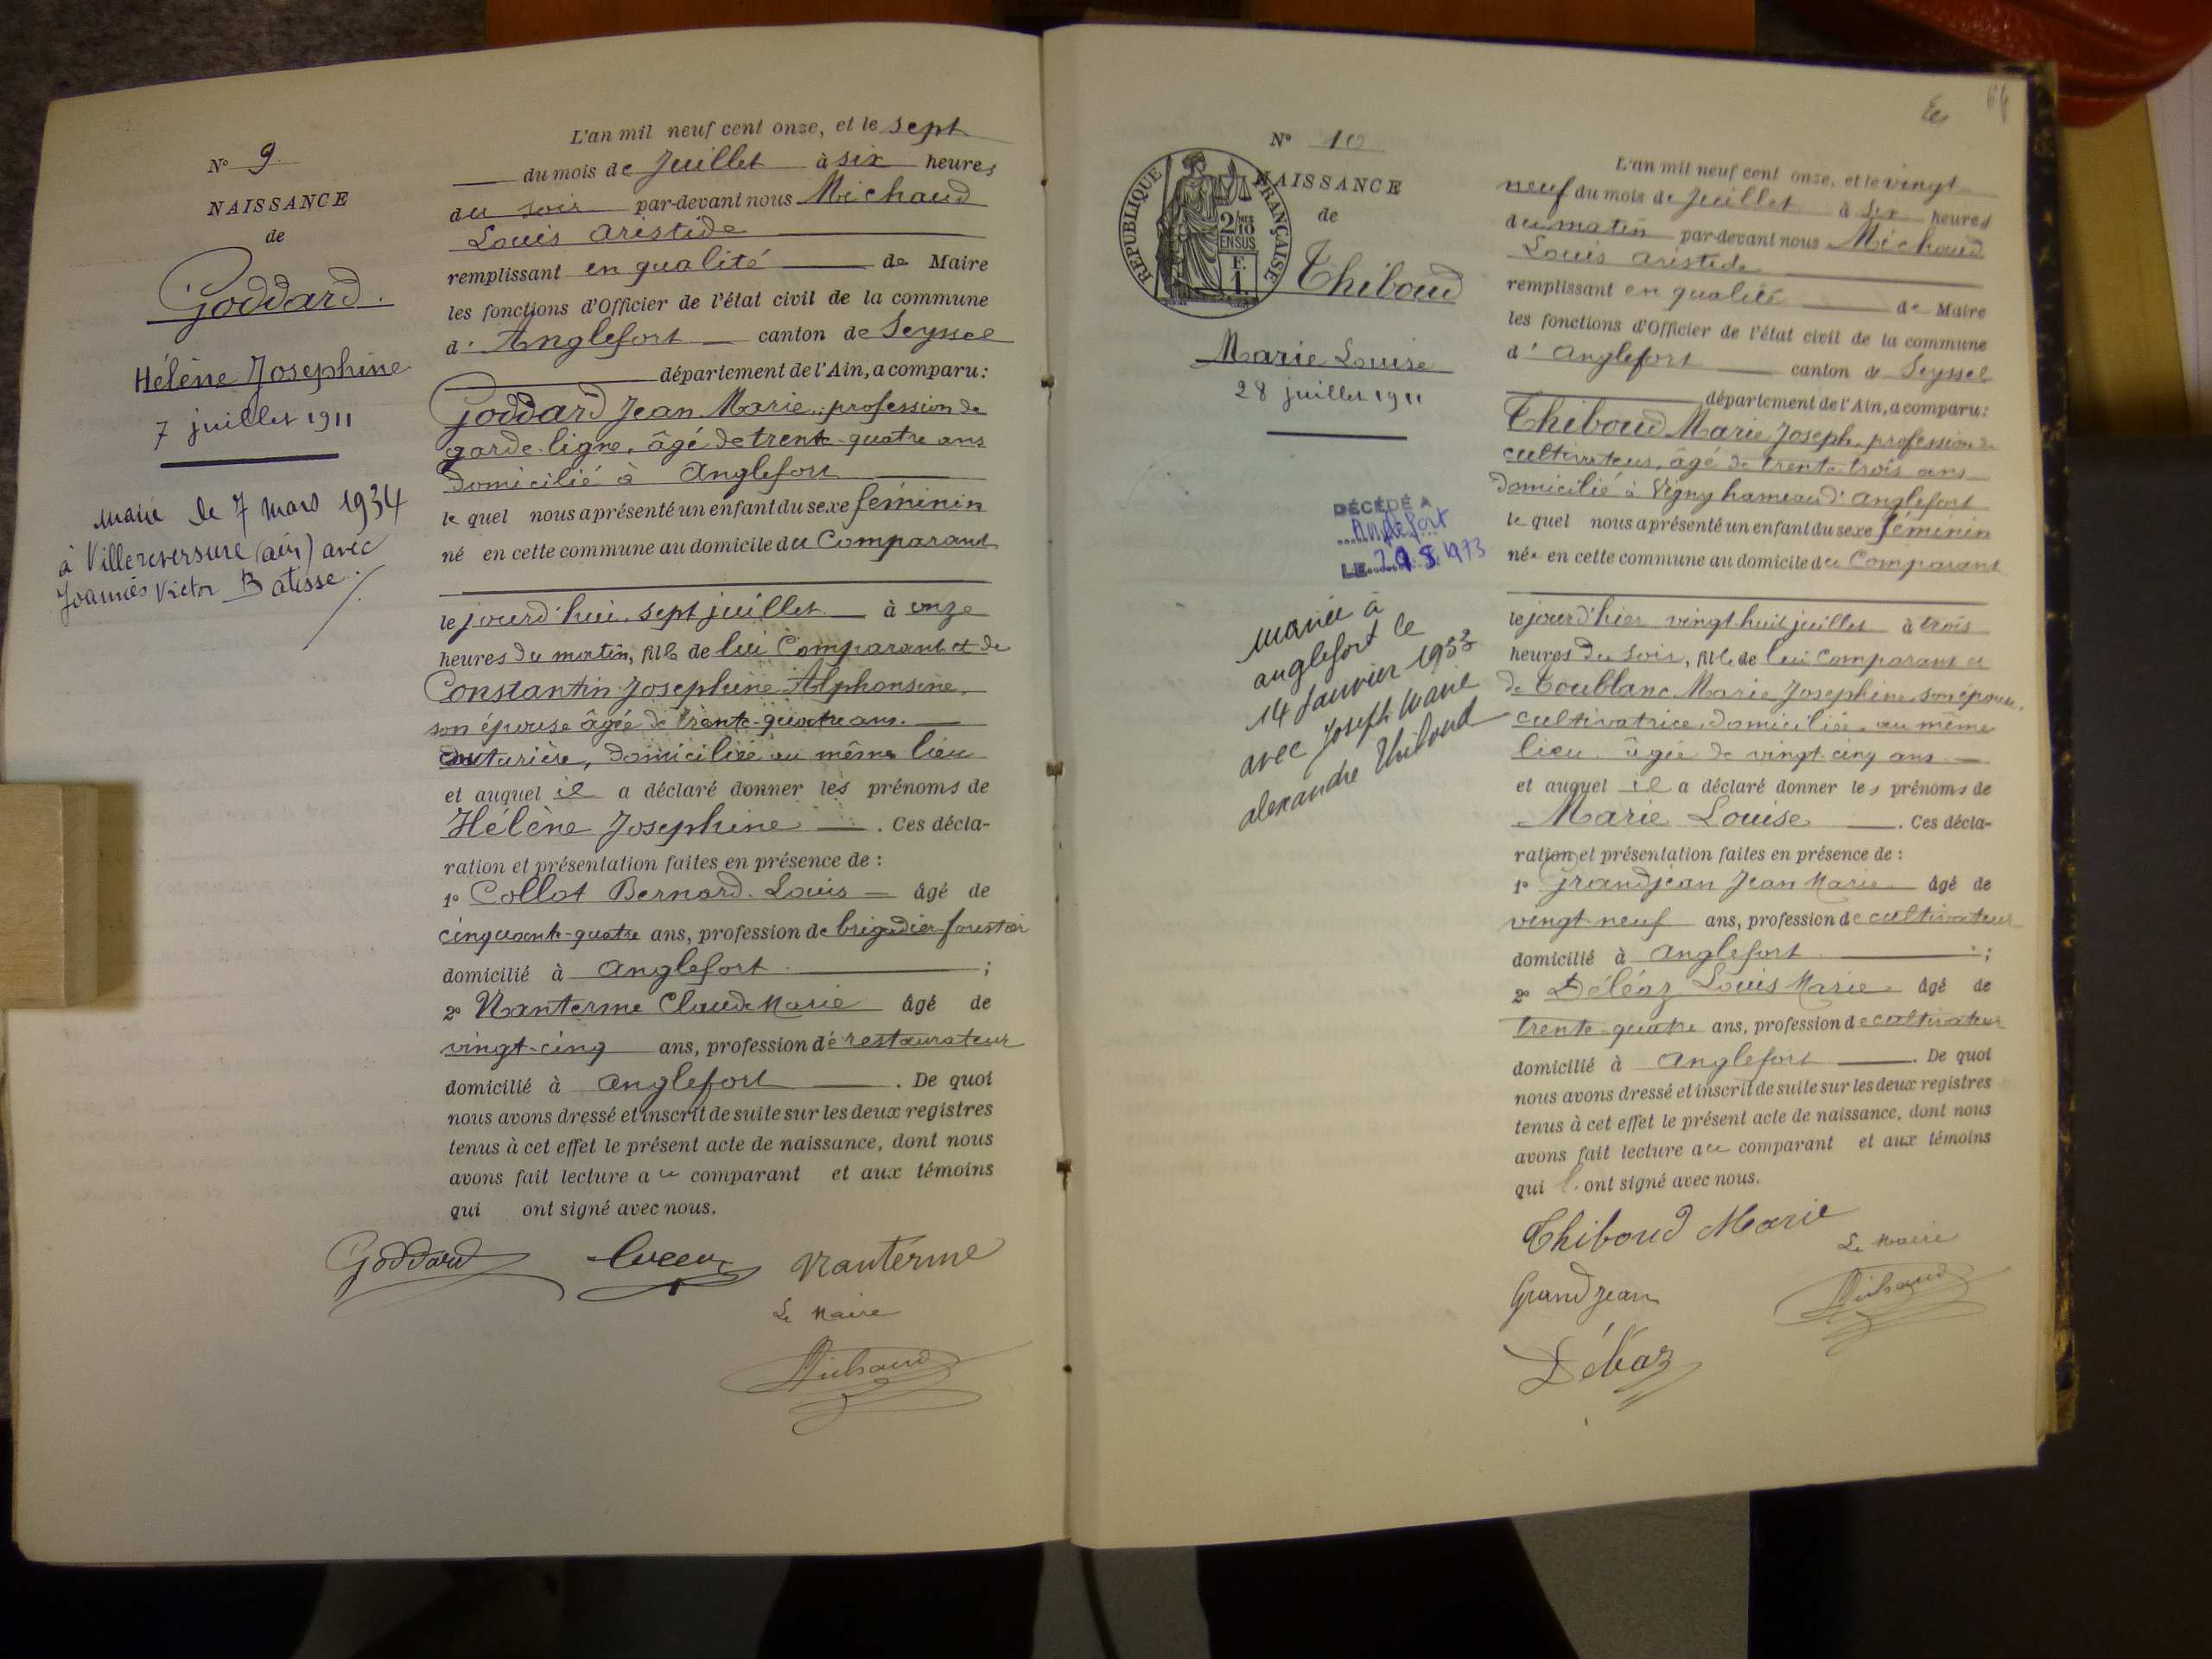 N° 9
NAISSANCE
de
Goddard.
Hélène Josephine
7 juillet 1911
marié le 7 mars 1934
à Villereversure (ain) avec
Joannès Victor Batisse.
L'an mil neuf cent onze, et le sept
du mois de Juillet à six heures
du soir par-devant nous Michaud
Louis Aristide
remplissant en qualité de Maire
les fonctions d'Officier de l'état civil de la commune
d' Anglefort canton de Seyssel
département de l'Ain, a comparu:
Goddard Jean Marie, profession de
garde-ligne, âgé de trente-quatre ans
domicilié à Anglefort
le quel nous a présenté un enfant du sexe féminin
né en cette commune au domicile du Comparant
le jourd'hui, sept juillet à onze
heures du matin, fille de lui Comparant et de
Constantin Josephine Alphonsine,
son épouse âgée de trente-quatre ans.
couturière, domiciliée au même lieu
et auquel il a déclaré donner les prénoms de
Hélène Josephine . Ces décla-
ration et présentation faites en présence de :
1° Collot Bernard Louis âgé de
cinquante-quatre ans, profession de brigadier forestier
domicilié à Anglefort ;
2° Nanterme Claude Marie âgé de
vingt-cinq ans, profession de restaurateur
domicilié à Anglefort . De quoi
nous avons dressé et inscrit de suite sur les deux registres
tenus à cet effet le présent acte de naissance, dont nous
avons fait lecture au comparant et aux témoins
qui ont signé avec nous.
Goddard Nanterme
Le Maire
Michaud
64
N° 10
NAISSANCE
de
RÉPUBLIQUE FRANÇAISE
2/10 EN SUS
F. 1.
Thiboud
Marie Louise
28 juillet 1911
DÉCÉDÉ A
Anglefort
LE 29 8 1973
mariée à
anglefort le
14 Janvier 1933
avec Joseph Marie
alexandre Thiboud
L'an mil neuf cent onze, et le vingt
neuf du mois de Juillet à six heures
du matin par-devant nous Michaud
Louis Aristide
remplissant en qualité de Maire
les fonctions d'Officier de l'état civil de la commune
d' Anglefort canton de Seyssel
département de l'Ain, a comparu:
Thiboud Marie Joseph, profession de
cultivateur, âgé de trente-trois ans
domicilié à Vigny hameau d'Anglefort
le quel nous a présenté un enfant du sexe féminin
née en cette commune au domicile du Comparant
le jourd'hier vingt-huit juillet à trois
heures du soir, fille de lui Comparant et
de Toublanc Marie Josephine, son épouse,
cultivatrice, domiciliée au même
lieu âgée de vingt-cinq ans
et auquel il a déclaré donner les prénoms de
Marie Louise . Ces décla-
ration et présentation faites en présence de :
1° Grandjean Jean Marie âgé de
vingt-neuf ans, profession de cultivateur
domicilié à Anglefort ;
2° Déléaz Louis Marie âgé de
trente-quatre ans, profession de cultivateur
domicilié à Anglefort . De quoi
nous avons dressé et inscrit de suite sur les deux registres
tenus à cet effet le présent acte de naissance, dont nous
avons fait lecture au comparant et aux témoins
qui ont signé avec nous.
Thiboud Marie
Le Maire
Grandjean
Michaud
Déléaz